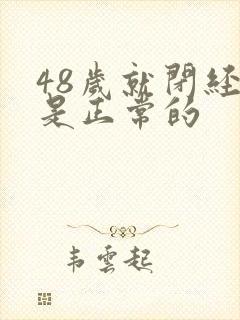 48歲就閉経
是正常的
韦雲起